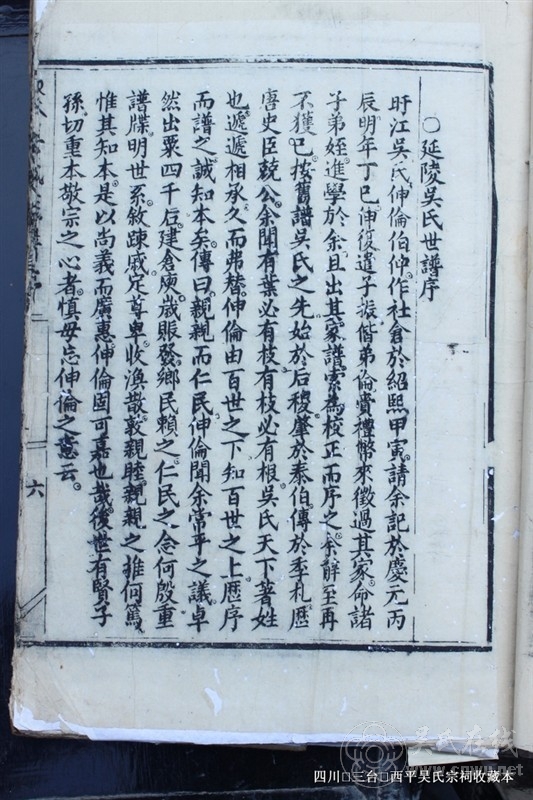 ○延陵吳氏世譜序
盱江吳氏伸倫伯仲作社倉於紹熙甲寅請余記於慶元丙
辰明年丁巳伸復遣子振偕弟倫賫禮幣來徵過其家命諸
子弟姪進學於余且出其家譜索為校正而序之余辭至再
不獲已按舊譜吳氏之先始於后稷肇於泰伯傳於季札歷
唐史臣兢公余聞有葉必有枝有枝必有根吳氏天下著姓
也遞遞相承久而弗替伸倫由百世之下知百世之上歷序
而譜之誠知本矣傳曰親親而仁民伸倫聞余常平之議卓
然出粟四千石建倉庾歲賑發鄉民賴之仁民之念何殷重
譜牒明世系敘疎戚定尊卑收渙散敦親睦親親之推何篤
惟其知本是以尚義而廣惠伸倫固可嘉也哉後世有賢子
孫切重本敬宗之心者慎毋忘伸倫之意云
六
吳氏在线
四川□三台□西平吴氏宗祠收藏本